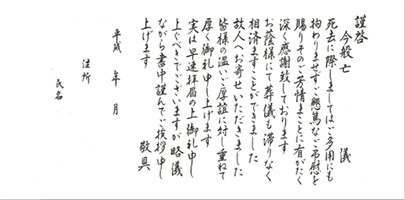 謹啓
今般 亡　儀
死去に際しましてはご多用にも
拘わりませずご懇篤なご弔慰を
賜りそのご芳情まことに有がたく
深く感謝致しております
お蔭様にて葬儀も滞りなく
相済ますことができました
故人へお寄せいただきました
皆様の温いご厚誼に対し重ねて
厚く御礼申し上げます
実は早速拝眉の上御礼申し
上ぐべきでございますが略儀
ながら書中謹んでご挨拶申し
上げます
敬具
平成　年　月
住所
氏名